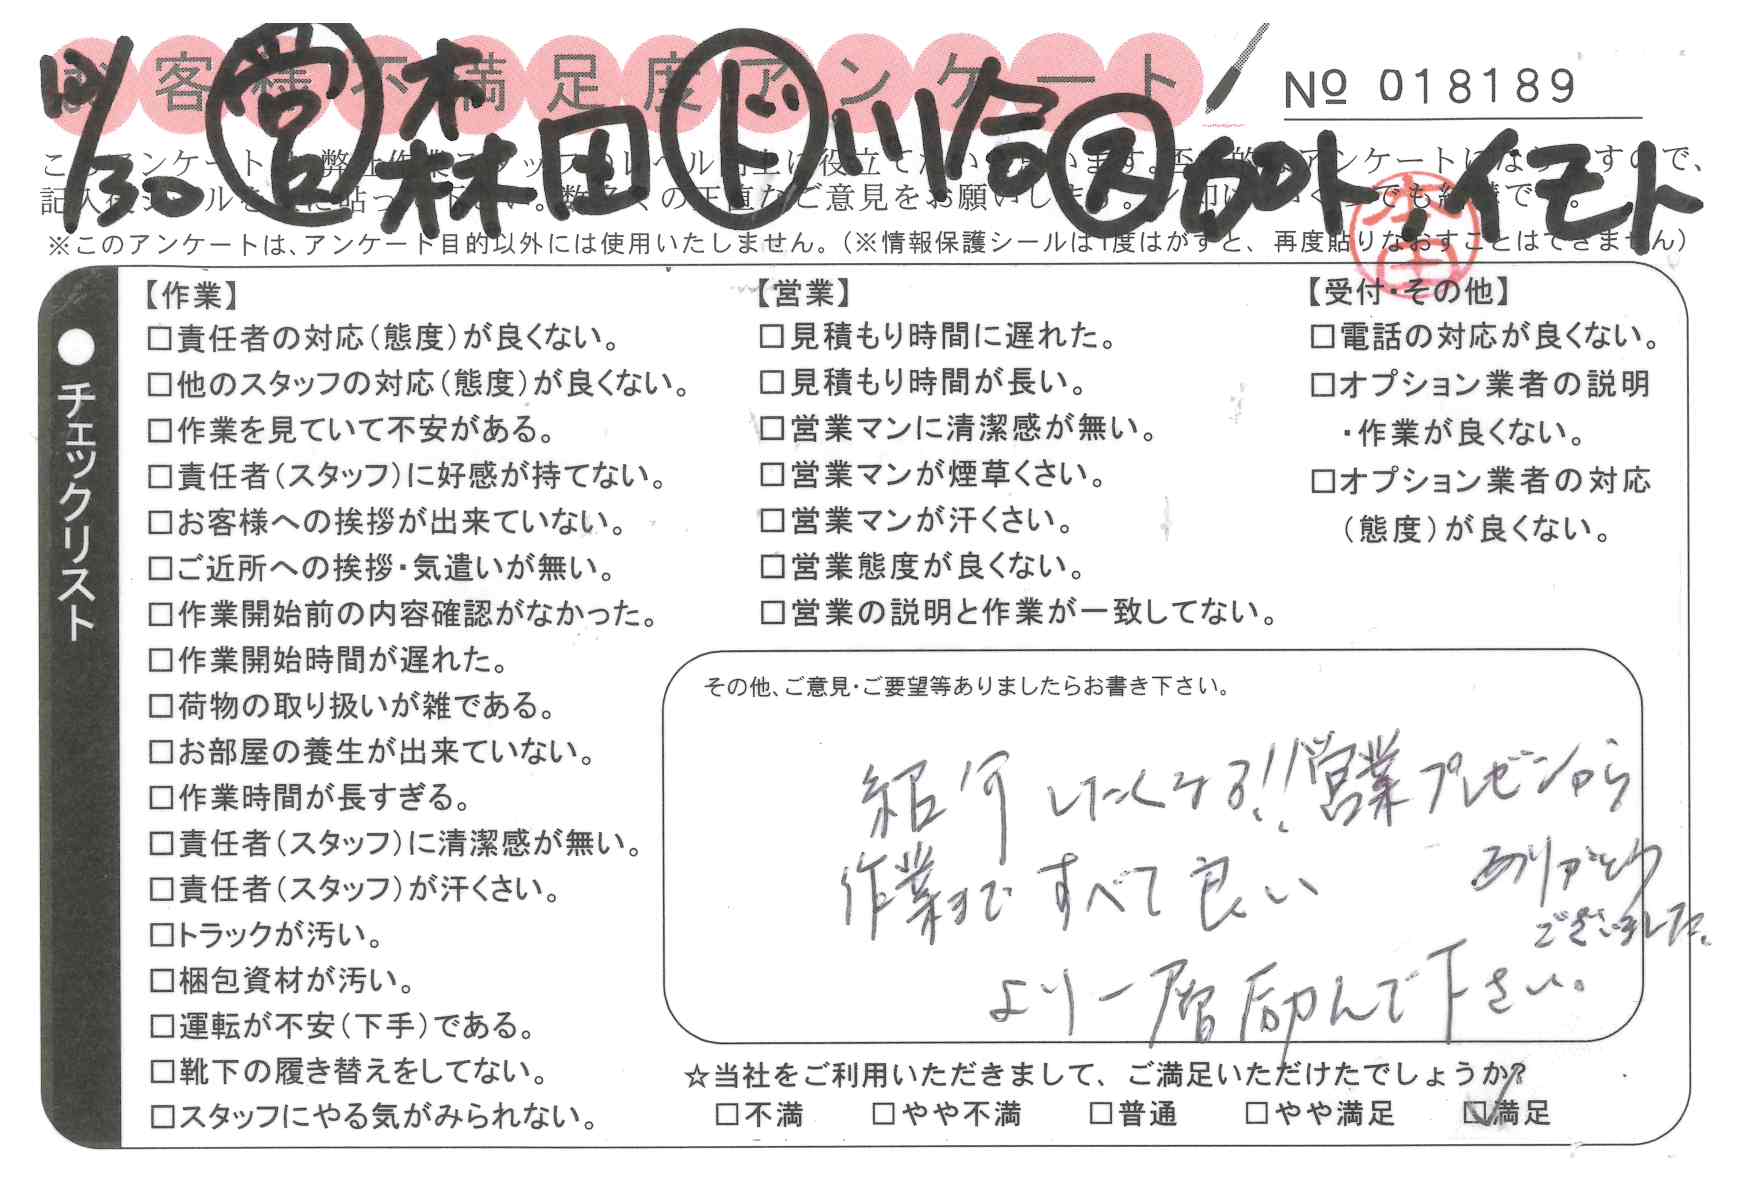 お客様不満足度アンケート
No 018189
12/30 営 森田 ド 川合 ス カトト,イモト
このアンケートは、弊社作業スタッフのレベル向上に役立てたいと思います。否定的なアンケートにはなりますので、
記入後シールを上に貼って下さい。数多くの正直なご意見をお願いします。レ印はいくつでも結構です。
※このアンケートは、アンケート目的以外には使用いたしません。(※情報保護シールは1度はがすと、再度貼りなおすことはできません)
●チェックリスト
【作業】
□責任者の対応(態度)が良くない。
□他のスタッフの対応(態度)が良くない。
□作業を見ていて不安がある。
□責任者(スタッフ)に好感が持てない。
□お客様への挨拶が出来ていない。
□ご近所への挨拶・気遣いが無い。
□作業開始前の内容確認がなかった。
□作業開始時間が遅れた。
□荷物の取り扱いが雑である。
□お部屋の養生が出来ていない。
□作業時間が長すぎる。
□責任者(スタッフ)に清潔感が無い。
□責任者(スタッフ)が汗くさい。
□トラックが汚い。
□梱包資材が汚い。
□運転が不安(下手)である。
□靴下の履き替えをしてない。
□スタッフにやる気がみられない。
【営業】
□見積もり時間に遅れた。
□見積もり時間が長い。
□営業マンに清潔感が無い。
□営業マンが煙草くさい。
□営業マンが汗くさい。
□営業態度が良くない。
□営業の説明と作業が一致してない。
【受付・その他】
□電話の対応が良くない。
□オプション業者の説明
・作業が良くない。
□オプション業者の対応
(態度)が良くない。
その他、ご意見・ご要望等ありましたらお書き下さい。
紹介したくなる!!営業プレゼンから
作業まですべて良い
ありがとう
ございました。
より一層励んで下さい。
☆当社をご利用いただきまして、ご満足いただけたでしょうか?
□不満 □やや不満 □普通 □やや満足 ☑満足